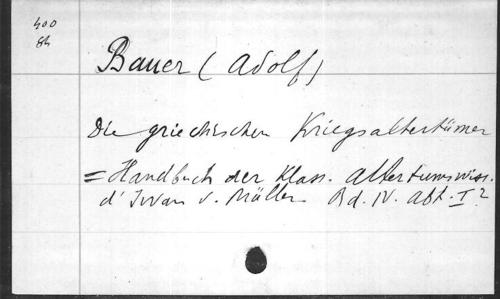 400
8h
Bauer (Adolf)
Die griechischen Kriegsaltertümer
= Handbuch der klass. Altertumswiss.
d' Iwan v. Müller Bd. IV. Abt. I 2